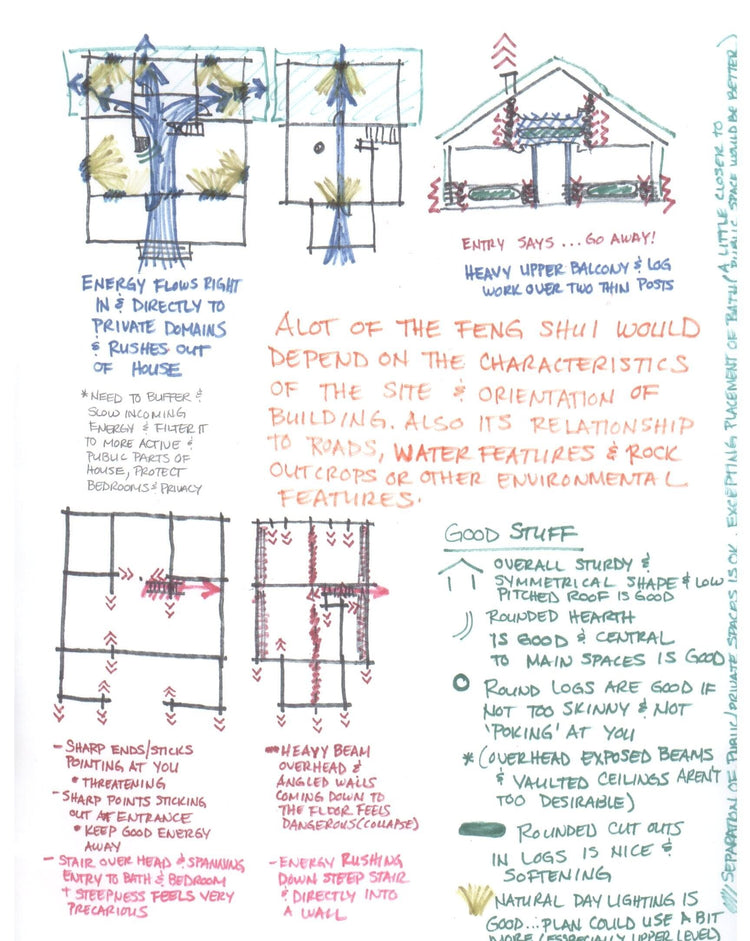 ENERGY FLOWS RIGHT
IN & DIRECTLY TO
PRIVATE DOMAINS
& RUSHES OUT
OF HOUSE
*NEED TO BUFFER &
SLOW INCOMING
ENERGY & FILTER IT
TO MORE ACTIVE &
PUBLIC PARTS OF
HOUSE, PROTECT
BEDROOMS & PRIVACY
ENTRY SAYS ... GO AWAY!
HEAVY UPPER BALCONY & LOG
WORK OVER TWO THIN POSTS
ALOT OF THE FENG SHUI WOULD
DEPEND ON THE CHARACTERISTICS
OF THE SITE & ORIENTATION OF
BUILDING. ALSO ITS RELATIONSHIP
TO ROADS, WATER FEATURES & ROCK
OUTCROPS OR OTHER ENVIRONMENTAL
FEATURES.
- SHARP ENDS/STICKS
POINTING AT YOU
• THREATENING
- SHARP POINTS STICKING
OUT AT ENTRANCE
• KEEP GOOD ENERGY
AWAY
- STAIR OVER HEAD & SPANNING
ENTRY TO BATH & BEDROOM
+ STEEPNESS FEELS VERY
PRECARIOUS
- HEAVY BEAM
OVERHEAD &
ANGLED WALLS
COMING DOWN TO
THE FLOOR FEELS
DANGEROUS (COLLAPSE)
- ENERGY RUSHING
DOWN STEEP STAIR
& DIRECTLY INTO
A WALL
GOOD STUFF
OVERALL STURDY &
SYMMETRICAL SHAPE & LOW
PITCHED ROOF IS GOOD
ROUNDED HEARTH
IS GOOD & CENTRAL
TO MAIN SPACES IS GOOD
ROUND LOGS ARE GOOD IF
NOT TOO SKINNY & NOT
'POKING' AT YOU
*(OVERHEAD EXPOSED BEAMS
& VAULTED CEILINGS AREN'T
TOO DESIRABLE)
ROUNDED CUT OUTS
IN LOGS IS NICE &
SOFTENING
NATURAL DAY LIGHTING IS
GOOD... PLAN COULD USE A BIT
MORE (ESPECIALLY UPPER LEVEL)
SEPARATION OF PUBLIC/PRIVATE SPACES IS OK, EXCEPTING PLACEMENT OF BATH (A LITTLE CLOSER TO
PUBLIC SPACE WOULD BE BETTER)